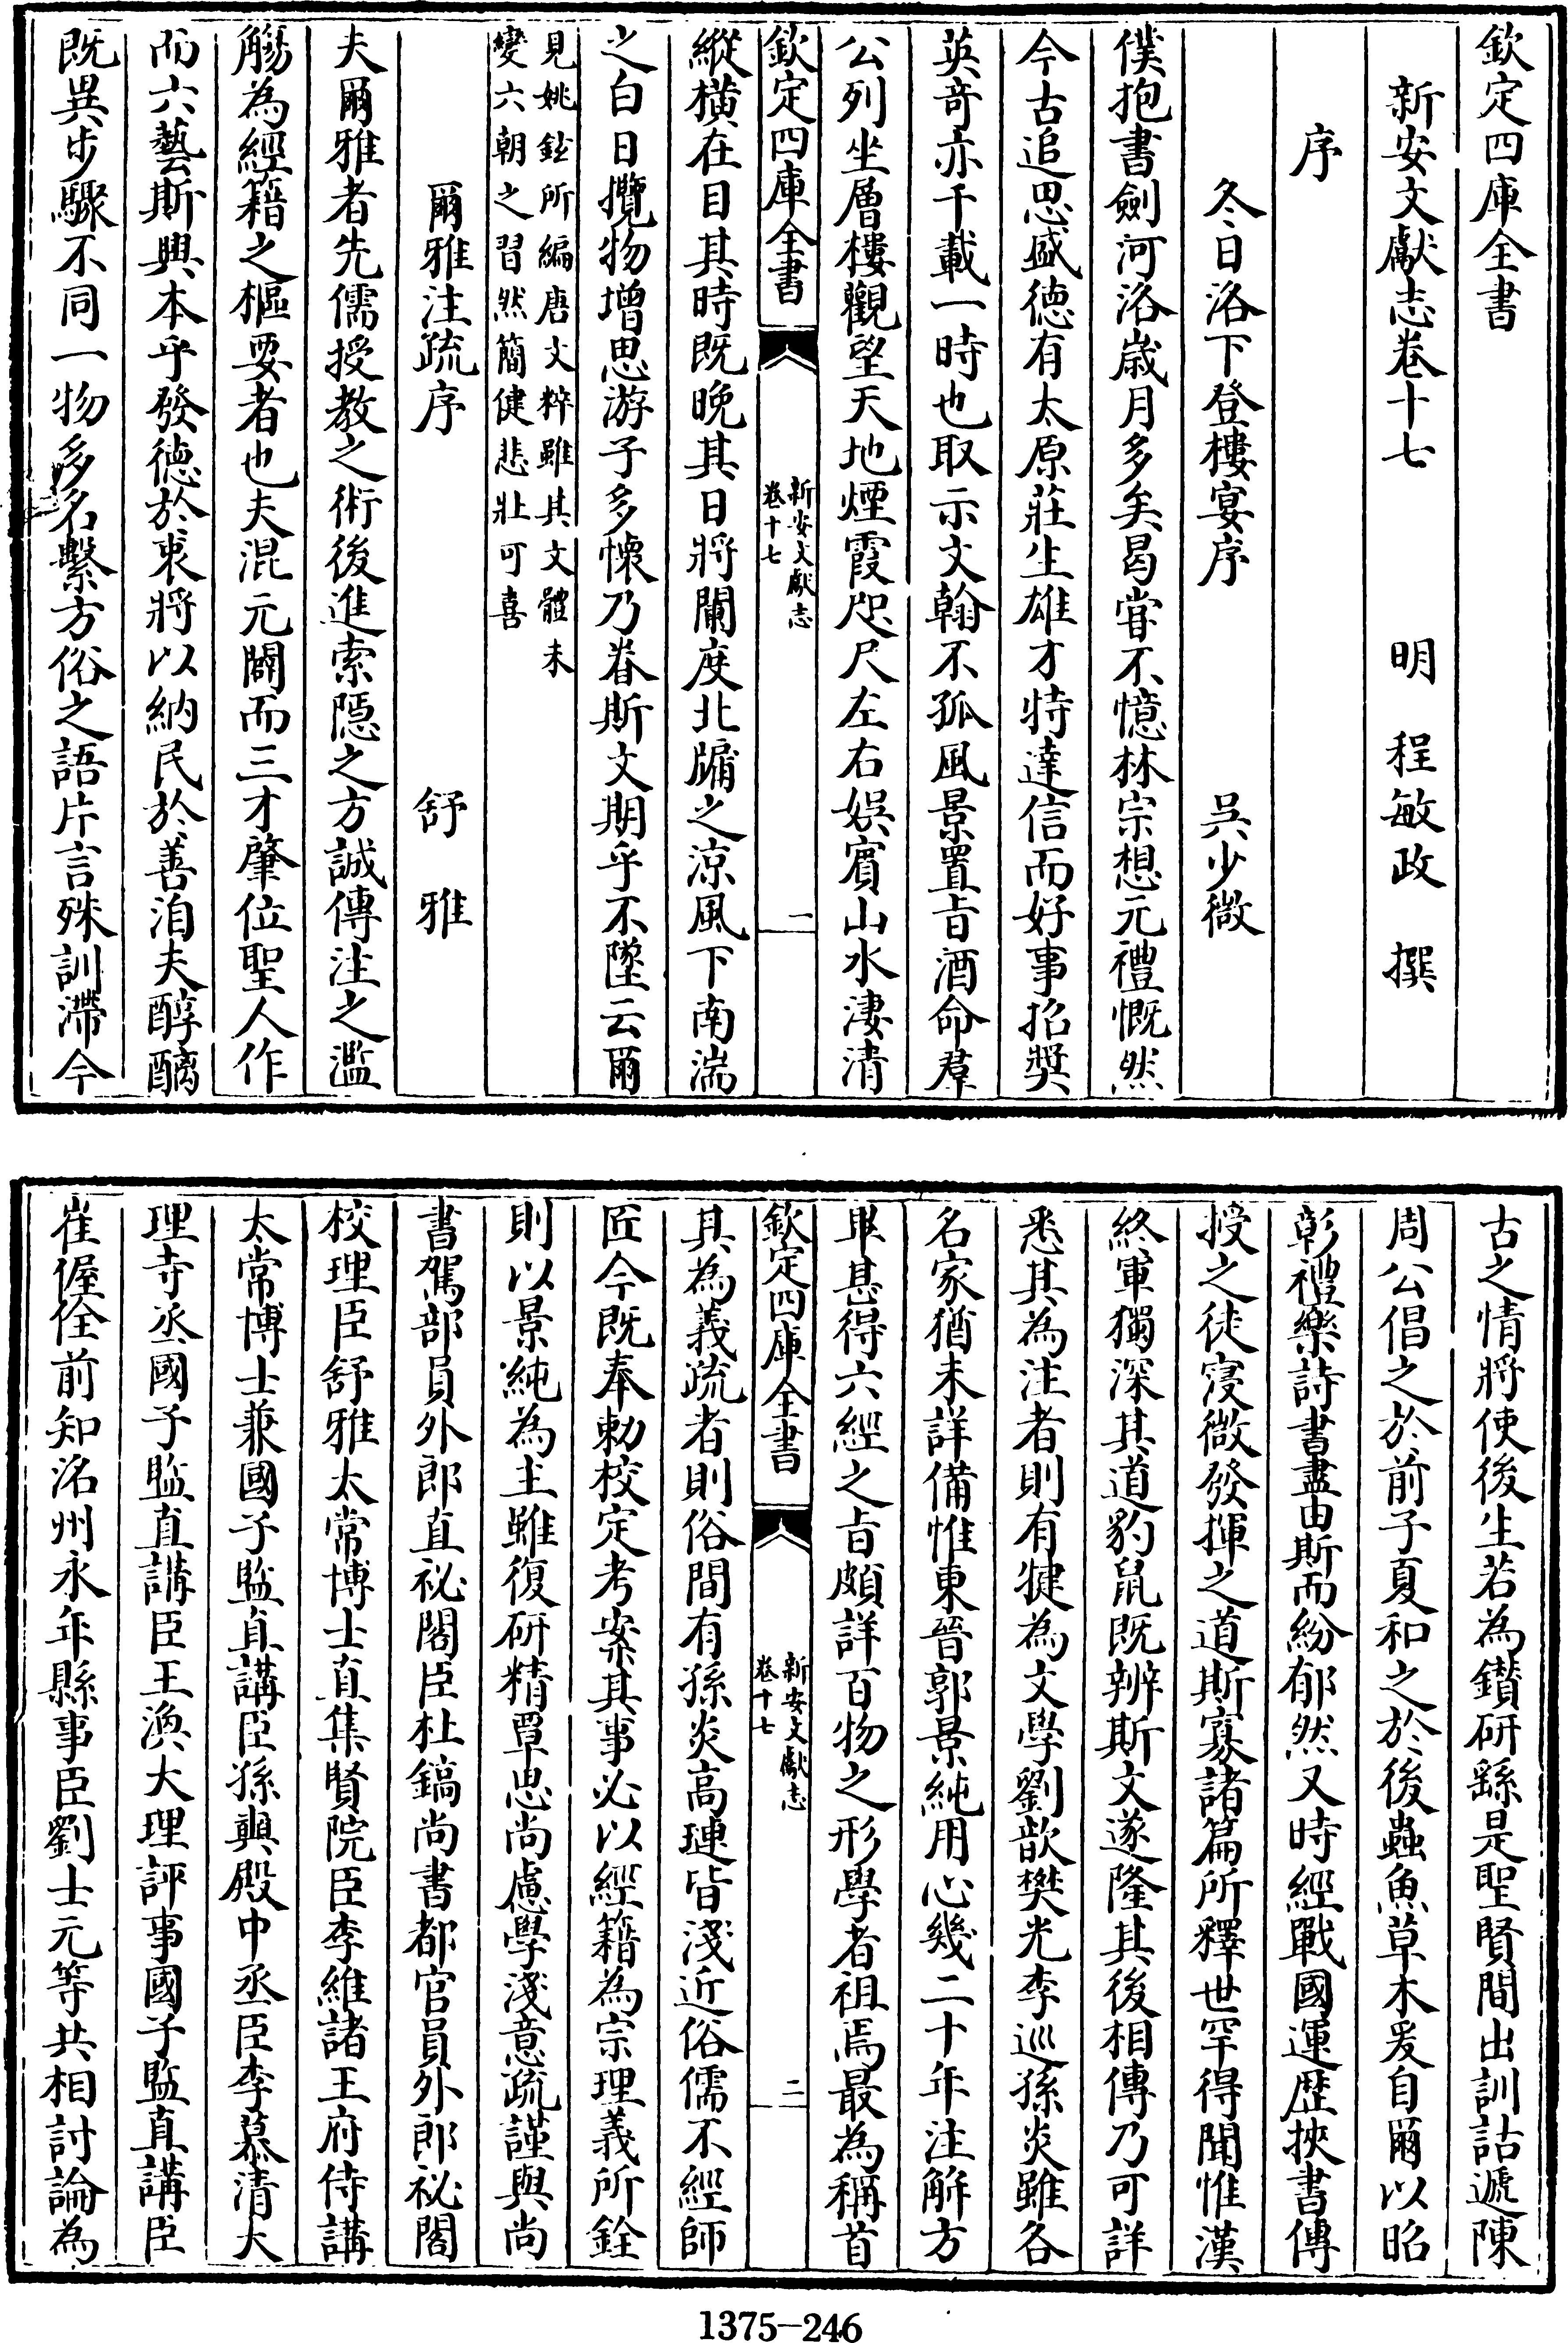 欽定四庫全書
新安文獻志卷十七　明　程敏政　撰
序
冬日洛下登樓宴序　吳少微
僕抱書劍河洛歲月多矣曷嘗不憶林宗想元禮慨然
今古追思盛德有太原莊生雄才特達信而好事招奬
英竒亦千載一時也取示文翰不孤風景置㫖酒命羣
公列坐層樓觀望天地煙霞咫尺左右娛賓山水淒清
欽定四庫全書
新安文獻志
卷十七
一
縱橫在目其時既晚其日將闌度北牖之涼風下南湍
之白日攬物增思游子多懷乃眷斯文期乎不墜云爾
見姚鉉所編唐文粹雖其文體未
變六朝之習然簡健悲壯可喜
爾雅注疏序　舒雅
夫爾雅者先儒授教之術後進索隱之方誠傳注之濫
觴為經籍之樞要者也夫混元闢而三才肇位聖人作
而六藝斯興本乎發德於衷將以納民於善洎夫醇醨
既異步驟不同一物多名繫方俗之語片言殊訓滯今
古之情將使後生若為鑚研繇是聖賢間出訓詁遞陳
周公倡之於前子夏和之於後蟲魚草木爰自爾以昭
彰禮樂詩書盡由斯而紛郁然又時經戰國運歴挾書傳
授之徒寖微發揮之道斯寡諸篇所釋世罕得聞惟漢
終軍獨深其道豹鼠既辨斯文遂隆其後相傳乃可詳
悉其為注者則有犍為文學劉歆樊光李巡孫炎雖各
名家猶未詳備惟東晉郭景純用心幾二十年注解方
畢甚得六經之㫖頗詳百物之形學者祖焉最為稱首
欽定四庫全書
新安文獻志
卷十七
二
其為義疏者則俗間有孫炎高璉皆淺近俗儒不經師
匠今既奉勅校定考案其事必以經籍為宗理義所銓
則以景純為主雖復研精覃思尚慮學淺意疏謹與尚
書駕部員外郎直祕閣臣杜鎬尚書都官員外郎祕閣
校理臣舒雅太常博士直集賢院臣李維諸王府侍講
太常博士兼國子監直講臣孫奭殿中丞臣李慕清大
理寺丞國子監直講臣王渙大理評事國子監直講臣
崔偓佺前知洺州永年縣事臣劉士元等共相討論為
1375-246